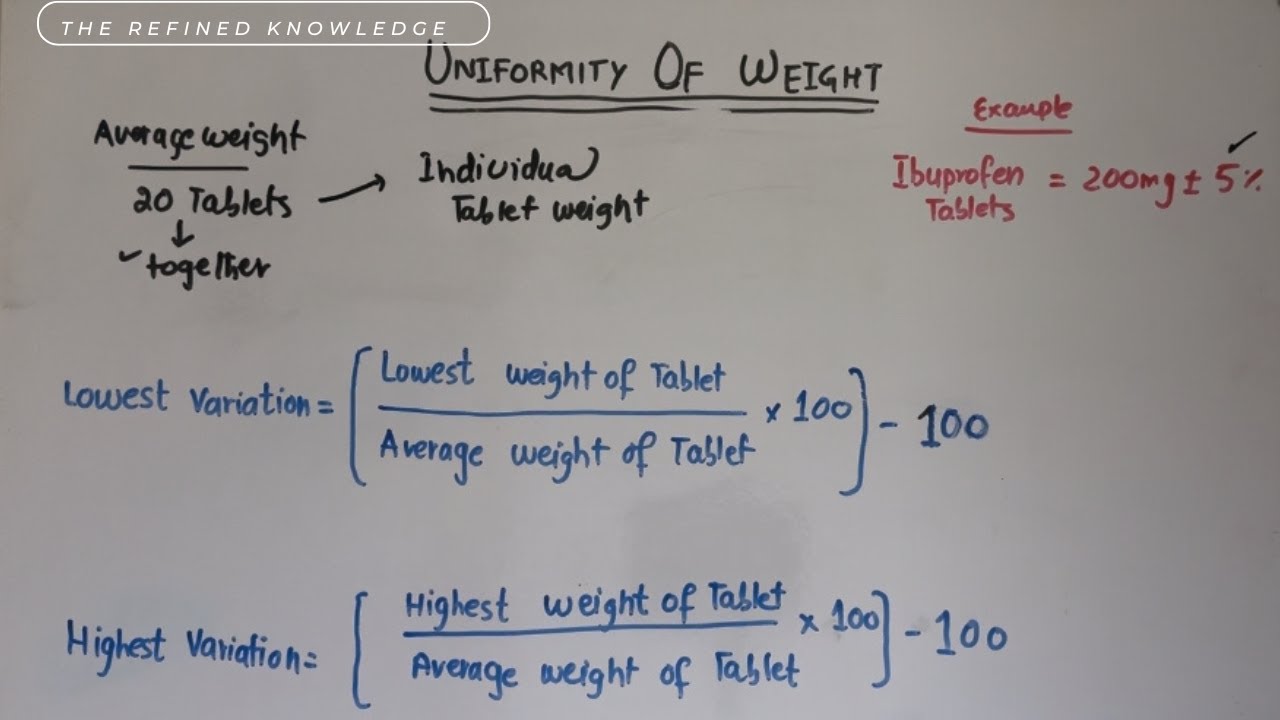 THE REFINED KNOWLEDGE
UNIFORMITY OF WEIGHT
Average weight
20 Tablets → Individual
Tablet weight
↓
✓ together
Example
Ibuprofen = 200mg ± 5%
Tablets
✓
Lowest Variation = [ Lowest weight of Tablet
Average weight of Tablet × 100 ] - 100
Highest Variation = [ Highest weight of Tablet
Average weight of Tablet × 100 ] - 100